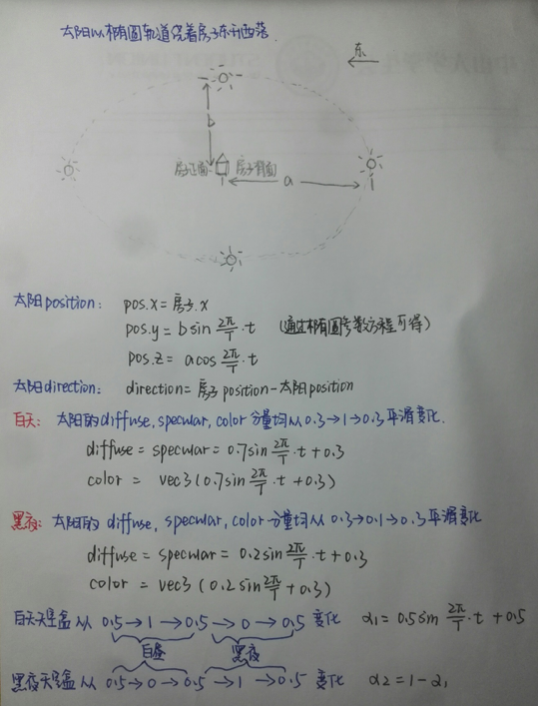 太阳以椭圆轨道绕着房子东升西落.
东
b
房子正面 房子背面
a
太阳position: pos.x = 房子.x
pos.y = b sin 2π/T · t (通过椭圆参数方程可得)
pos.z = a cos 2π/T · t
太阳direction: direction = 房子position - 太阳position
白天: 太阳的diffuse, specular, color分量均从0.3→1→0.3平滑变化.
diffuse = specular = 0.7sin 2π/T · t + 0.3
color = vec3(0.7sin 2π/T · t + 0.3)
黑夜: 太阳的 diffuse, specular, color 分量均从 0.3→0.1→0.3平滑变化
diffuse = specular = 0.2sin 2π/T · t + 0.3
color = vec3 (0.2sin 2π/T + 0.3)
白天天空盒从 0.5→1→0.5→0→0.5 变化 α1 = 0.5sin 2π/T · t + 0.5
白昼 黑夜
黑夜天空盒从 0.5→0→0.5→1→0.5 变化 α2 = 1-α1